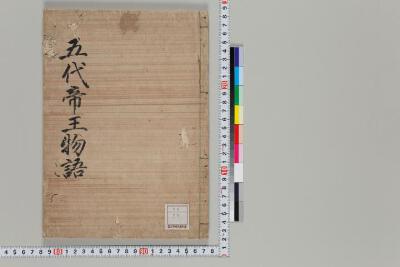 五代帝王物語